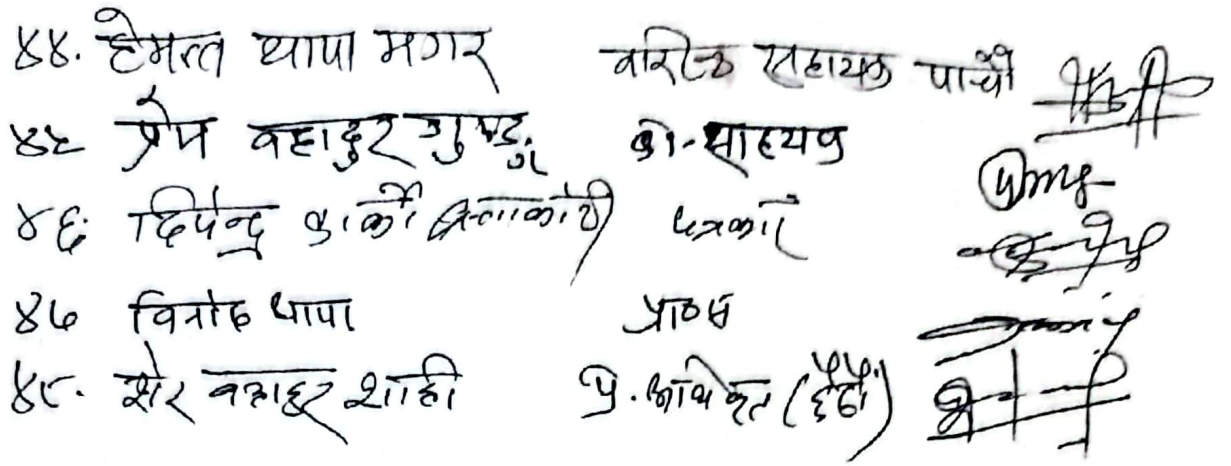 ४४. हेमन्त थापा मगर वरिष्ठ सहायक पाचौं
४५ प्रेम वहादुर गुरुङ्ग को-साहयक
४६. दिपेन्द्र कार्की पत्रकार
४७ विनोद थापा
४८. शेर बहादुर शाही प्र. अधिकृत (छैठौं)